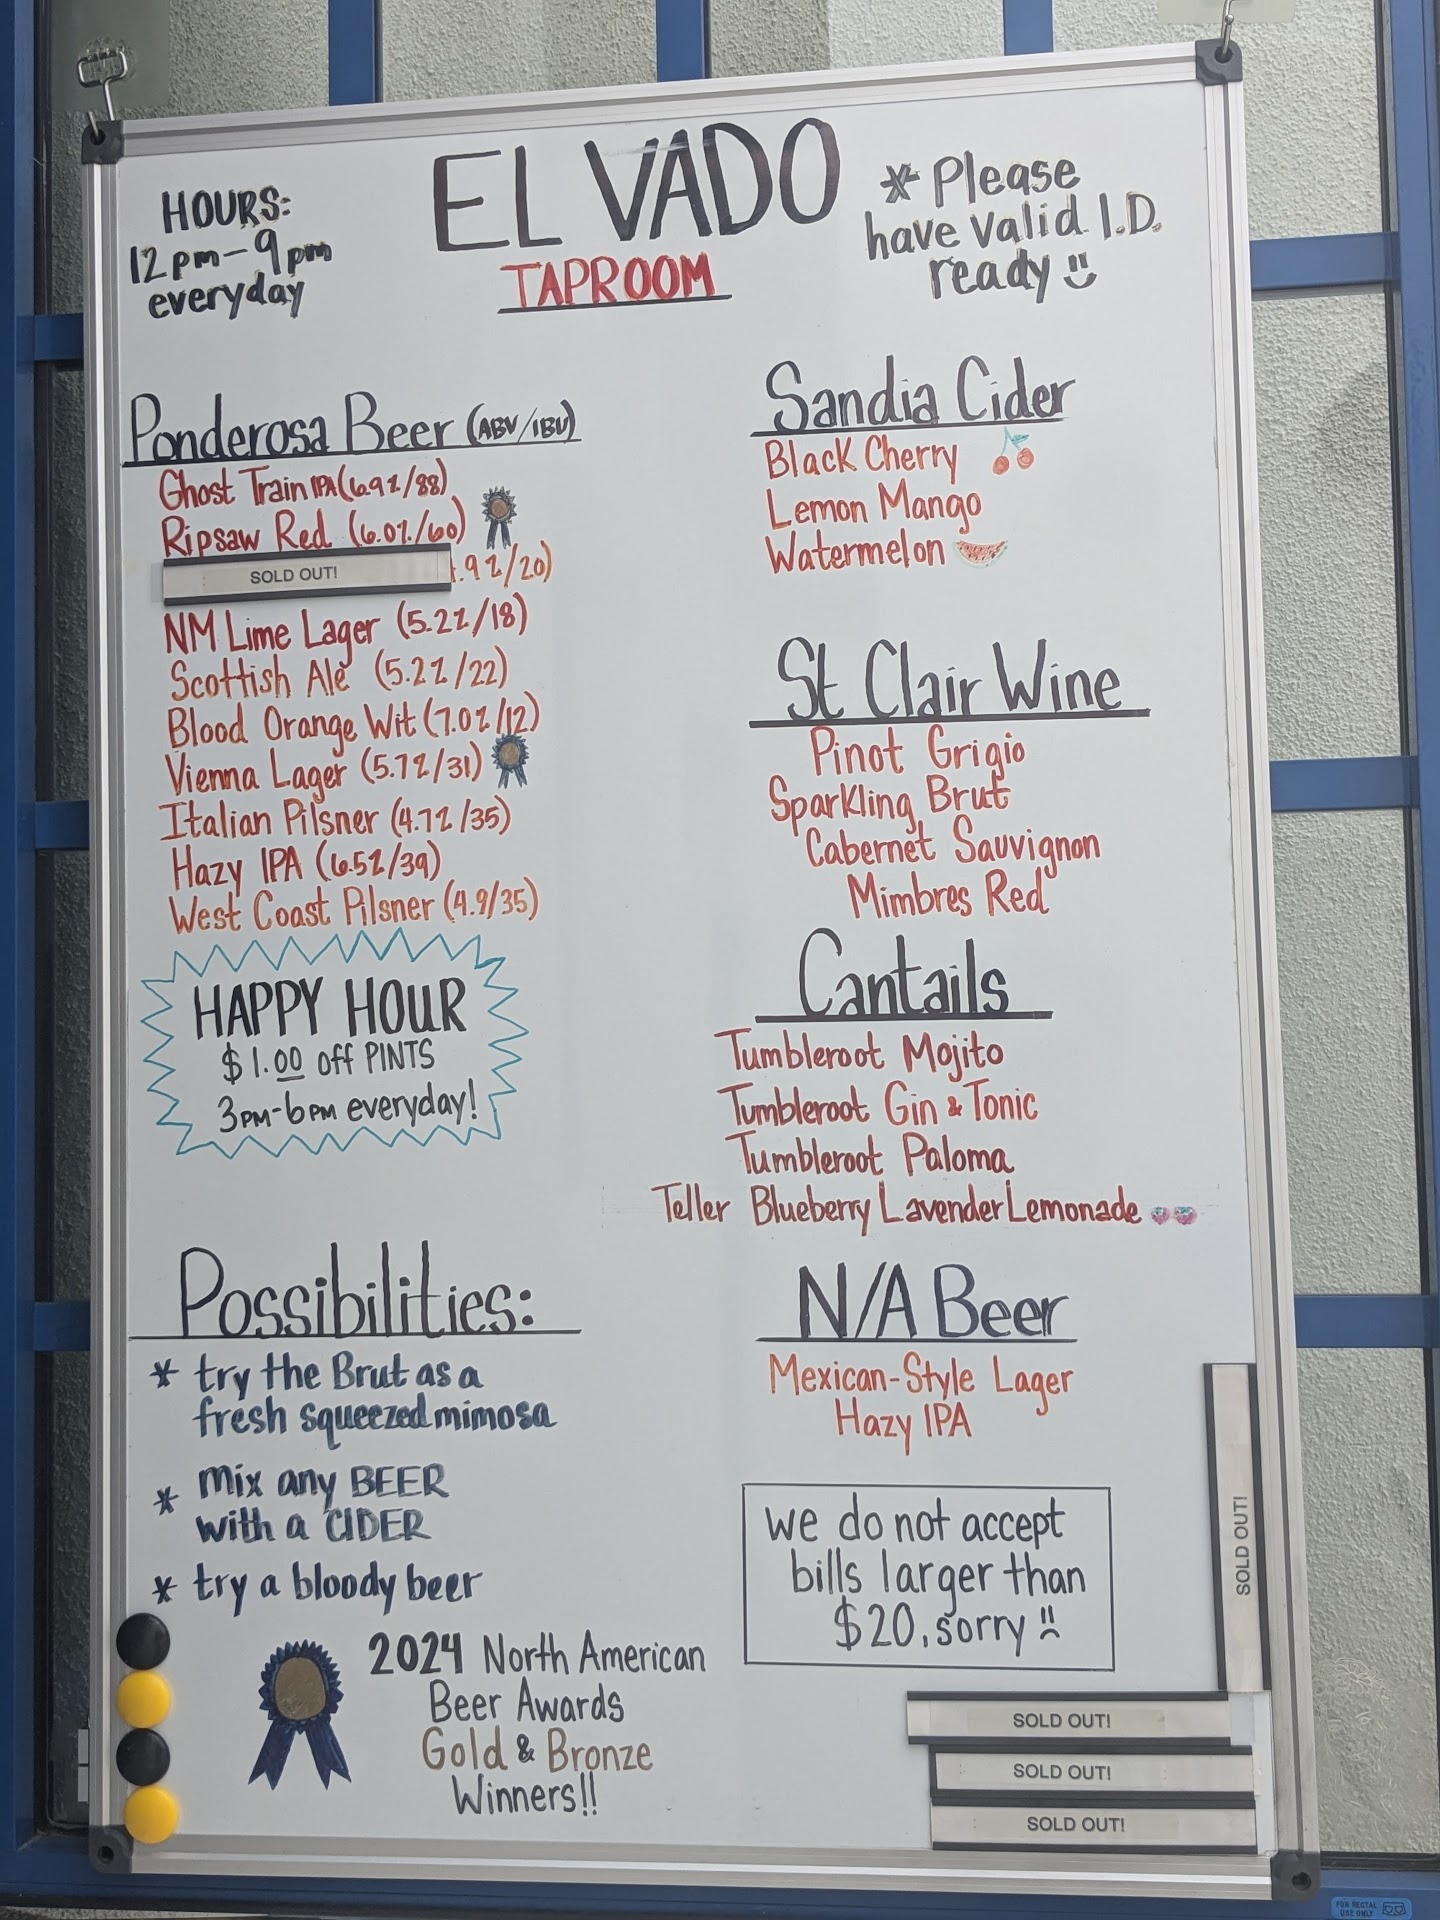 EL VADO
TAPROOM
HOURS:
12pm-9pm
everyday
* Please
have valid I.D.
ready
Ponderosa Beer (ABV/IBU)
Ghost Train IPA (6.9%/88)
Ripsaw Red (6.0%/60)
SOLD OUT! .9%/20)
NM Lime Lager (5.2%/18)
Scottish Ale (5.2%/22)
Blood Orange Wit (7.0%/12)
Vienna Lager (5.7%/31)
Italian Pilsner (4.7%/35)
Hazy IPA (6.5%/39)
West Coast Pilsner (4.9/35)
HAPPY HOUR
$1.00 off PINTS
3PM-6PM everyday!
Possibilities:
* try the Brut as a
fresh squeezed mimosa
* mix any BEER
with a CIDER
* try a bloody beer
2024 North American
Beer Awards
Gold & Bronze
Winners!!
Sandia Cider
Black Cherry
Lemon Mango
Watermelon
St Clair Wine
Pinot Grigio
Sparkling Brut
Cabernet Sauvignon
Mimbres Red
Cantails
Tumbleroot Mojito
Tumbleroot Gin & Tonic
Tumbleroot Paloma
Teller Blueberry Lavender Lemonade
N/A Beer
Mexican-Style Lager
Hazy IPA
we do not accept
bills larger than
$20, sorry
SOLD OUT!
SOLD OUT!
SOLD OUT!
SOLD OUT!
FOR RECTAL
USE ONLY